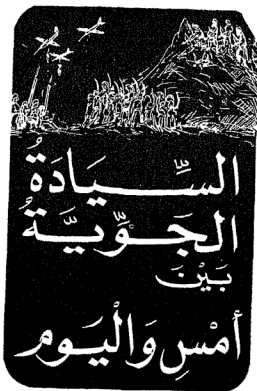 السِّيَادَةُ
الجَوِّيَّةُ
بَيْنَ
أَمْسِ وَالْيَوم